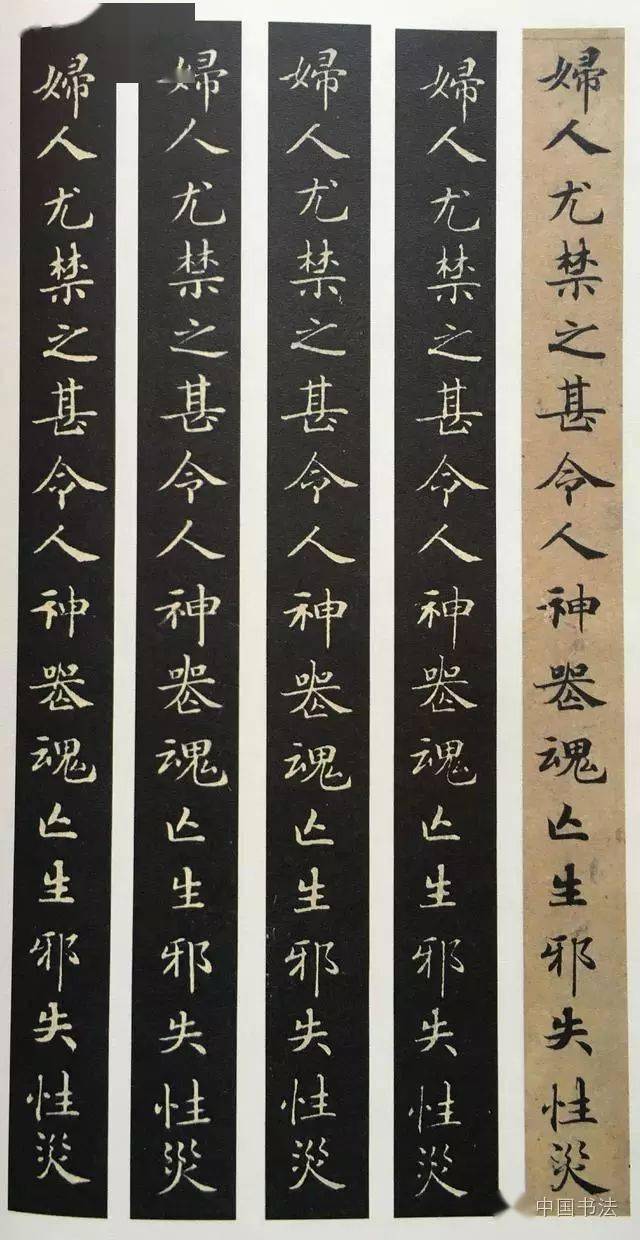 婦人尤禁之甚令人神喪魂亡生邪失性災
婦人尤禁之甚令人神喪魂亡生邪失性災
婦人尤禁之甚令人神喪魂亡生邪失性災
婦人尤禁之甚令人神喪魂亡生邪失性災
婦人尤禁之甚令人神喪魂亡生邪失性災
中国书法